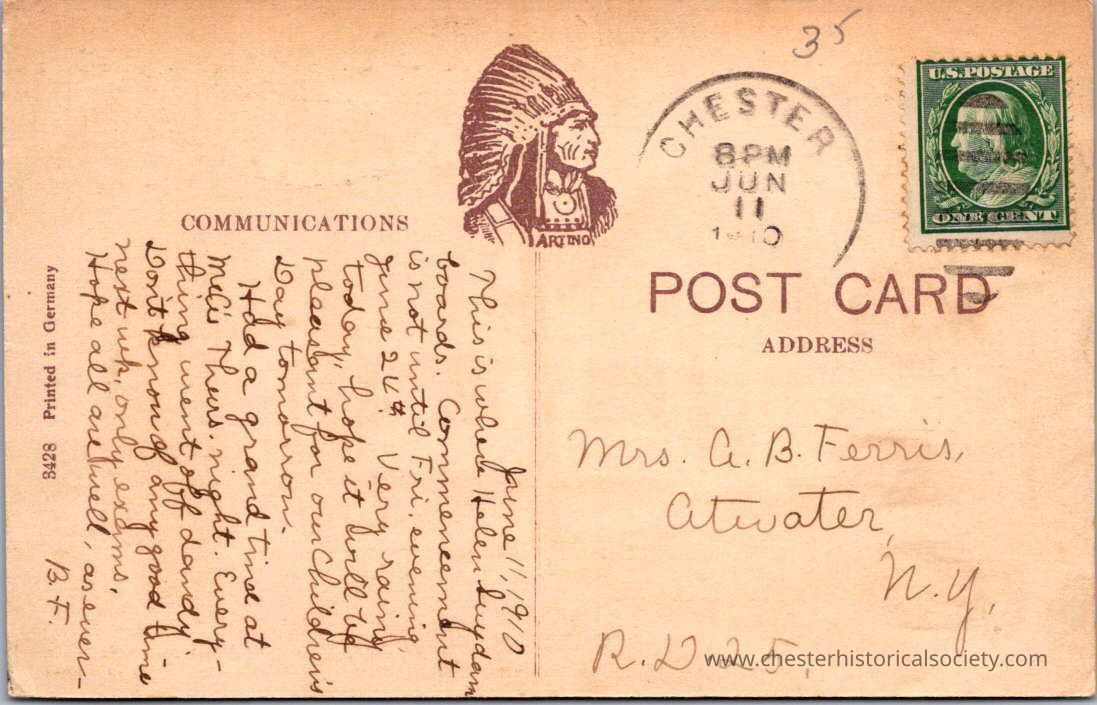 35
U.S. POSTAGE
ONE CENT
CHESTER
8PM
JUN
11
1910
ARTINO
COMMUNICATIONS
POST CARD
ADDRESS
June 11, 1910
This is where Helen Suydam
boards. Commencement
is not until Fri. evening
June 24th. Very rainy
today, hope it will be
pleasant for our Children's
Day tomorrow.
Had a grand time at
Thurs. night. Every-
thing went off dandy.
Don't know of any good time
next wk, only exams.
Hope all are well, as ever-
B.F.
3428 Printed in Germany
Mrs. A. B. Ferris,
Atwater,
N.Y.,
R.D 25,
www.chesterhistoricalsociety.com